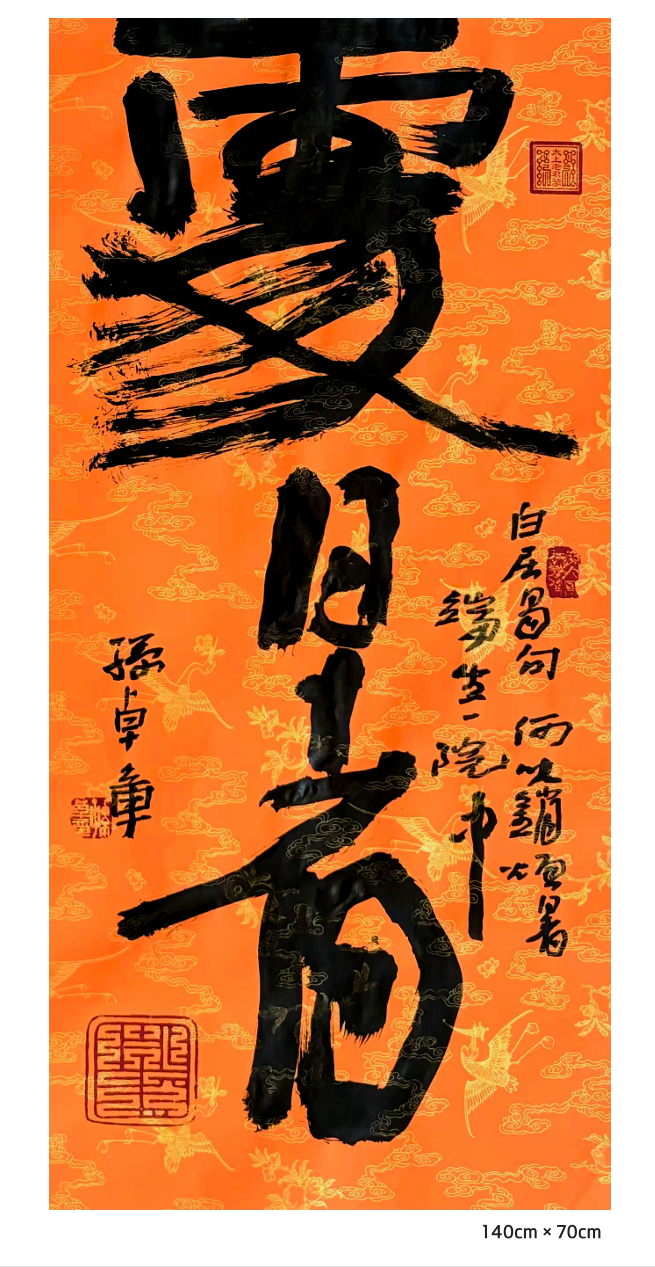 處暑
白居易句 何以銷煩暑
端坐一院中
孫卓章
140cm × 70cm